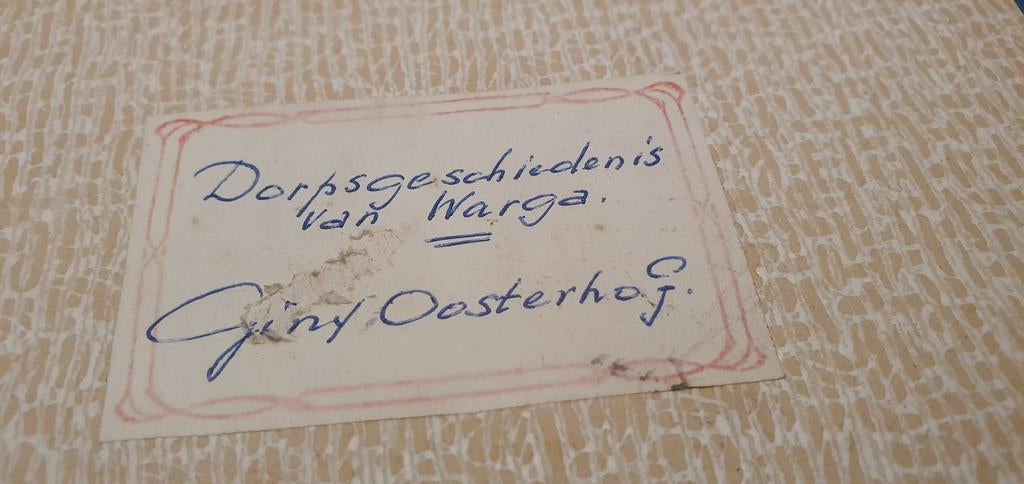 Dorpsgeschiedenis
van Warga.
Giny Oosterhof.